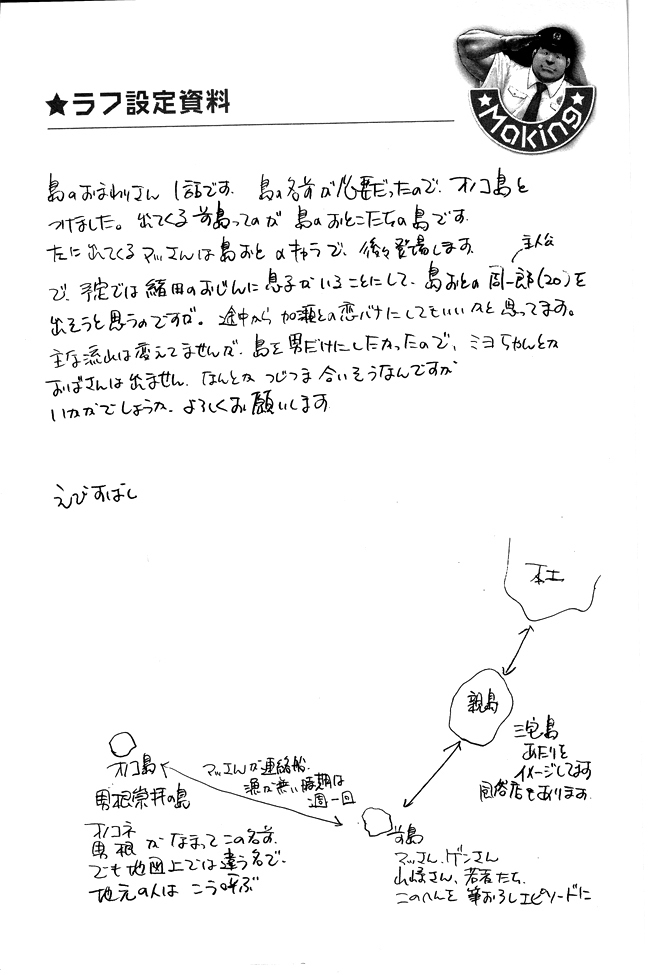 ★ラフ設定資料
★Making★
島のおまわりさん 1話です。 島の名前が必要だったので、オノコ島と
つけました。出てくる前島ってのが 島のおとこたちの島です。
たに出てくるマッさんは島おと のキャラで、後々登場します。
主人公
で、予定では緒田のおじんに息子がいることにして、島おとの周一郎(20)を
出そうと思うのですが。途中から 加瀬との恋バナにしてもいいかと思ってます。
主な流れは変えてませんが、島を男だけにしたかったので、ミヨちゃんとか
おばさんは出ません。なんとか つじつま合いそうなんですが
いかがでしょうか。よろしくお願いします。
えびすばし
本土
親島
三宅島
あたりを
イメージしてます
風俗店もあります。
オノコ島
男根崇拝の島
マッさんが連絡船。
漁が無い時期は
週一回
オノコネ
男根 がなまってこの名前。
でも地図上では違う名で、
地元の人は こう呼ぶ
前島
マッさん、ゲンさん
山崎さん、若者たち、
このへんを 筆おろしエピソードに